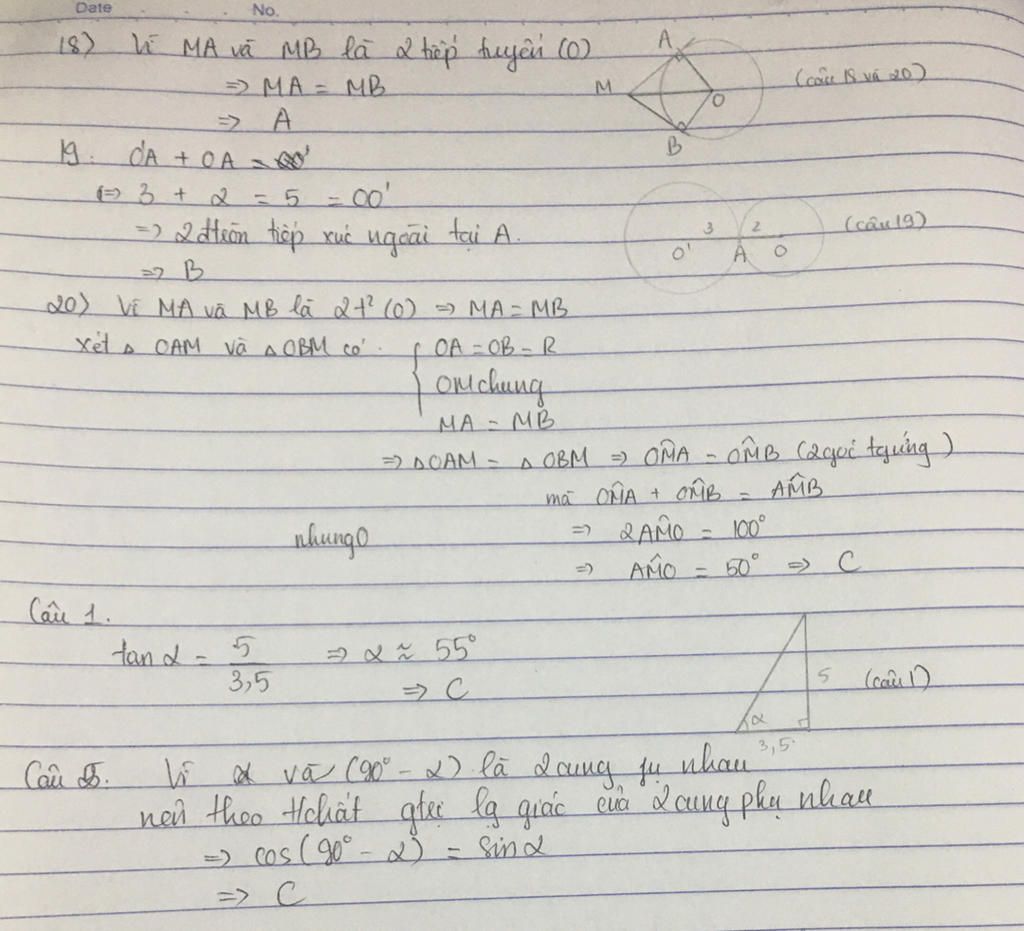 Date No.
18) Vì MA và MB là 2 tiếp tuyến (O)
⇒ MA = MB
⇒ A
A
M
O
B
(câu 18 và 20)
19. O'A + OA = OO'
⇔ 3 + 2 = 5 = OO'
⇒ 2 đtròn tiếp xúc ngoài tại A.
⇒ B
3 2
O' A O
(câu 19)
20) Vì MA và MB là 2t² (O) ⇒ MA = MB
Xét △ OAM và △OBM có: { OA = OB = R
OM chung
MA = MB
⇒ △OAM = △ OBM ⇒ OM̂A = OM̂B (2 góc tg ứng)
mà OM̂A + OM̂B = AM̂B
⇒ 2AM̂O = 100°
nhungO
⇒ AM̂O = 50° ⇒ C
Câu 1.
tan α = 5/3,5 ⇒ α ≈ 55°
⇒ C
5
α
3,5
(câu 1)
Vì α và (90° - α) là 2 cung nhau
nên theo t/chất lg giác của 2 cung phụ nhau
⇒ cos(90° - α) = sin α
⇒ C